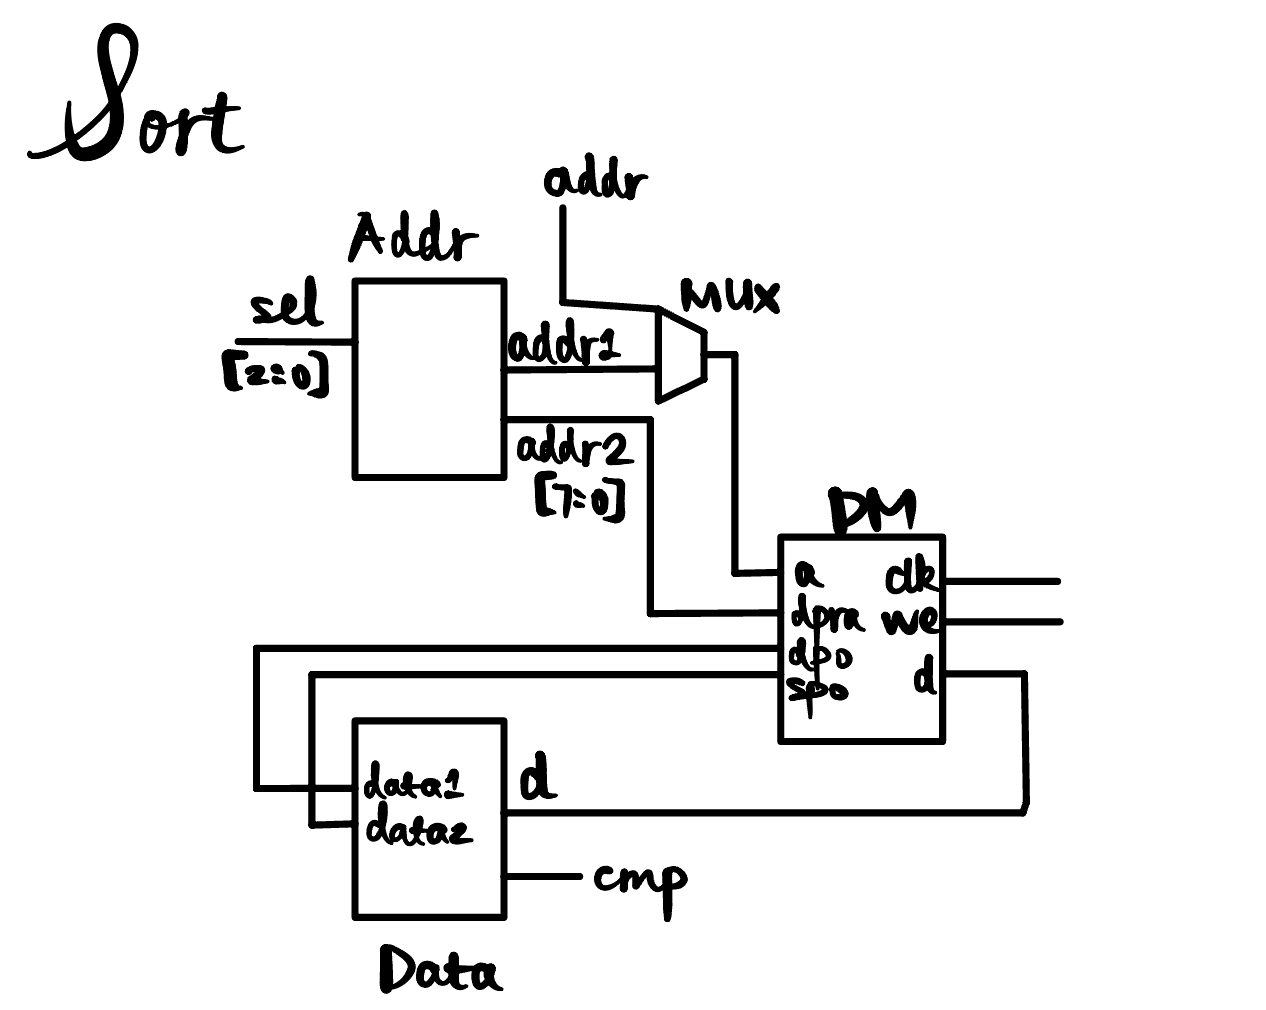 Sort
addr
Addr
MUX
sel
[2:0]
addr1
addr2
[7:0]
DM
a
clk
dpra
we
dpo
spo
d
data1
data2
d
cmp
Data